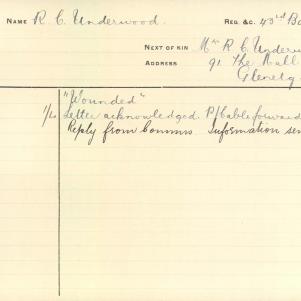 NAME R. C. Underwood. REG. &C. 43rd Ba
NEXT OF KIN Mrs R C Underw
ADDRESS 91 The Mall
Glenelg
"Wounded"
Letter acknowledged. P/Cable forward
Reply from Comms Information sen